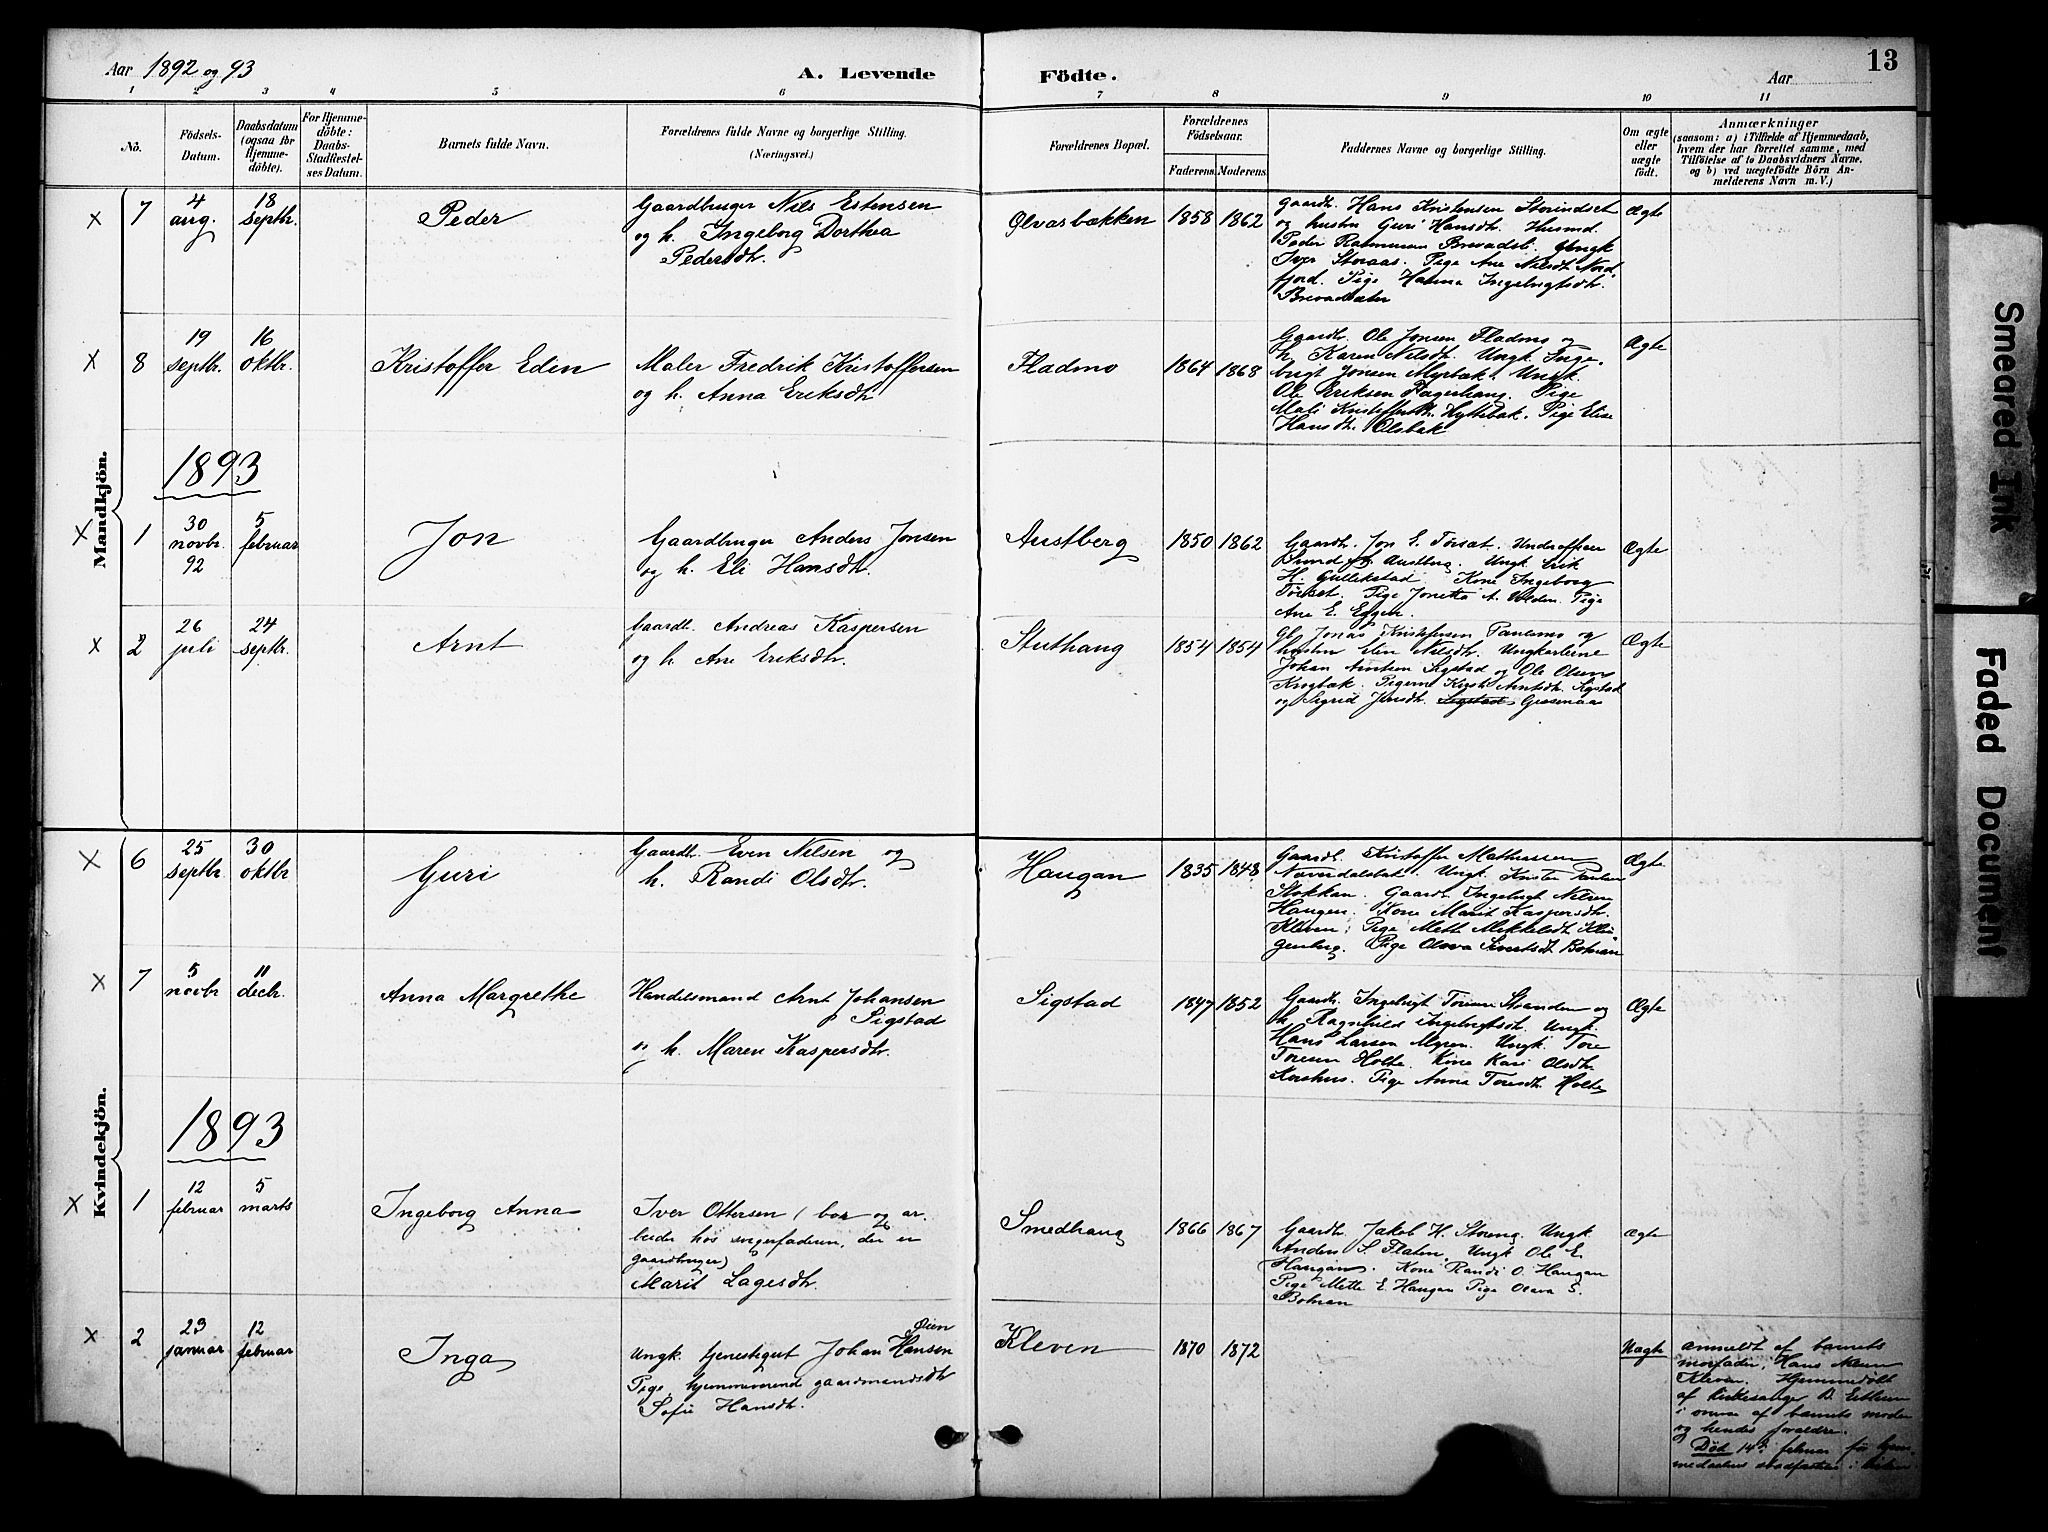 Aar 1892 og 93
A. Levende
Födte.
Aar
13
1 2 3 4 5 6 7 8 9 10 11
No.
Födsels-
Datum.
Daabsdatum
(ogsaa for
Hjemme-
döbte).
For Hjemme-
döbte:
Daabs-
Stadfæstel-
ses Datum.
Barnets fulde Navn.
Forældrenes fulde Navne og borgerlige Stilling.
(Næringsvei.)
Forældrenes Bopæl.
Forældrenes
Födselsaar.
Faderens Moderens
Faddernes Navne og borgerlige Stilling.
Om ægte
eller
uægte
födt.
Anmærkninger
(saasom: a) i Tilfælde af Hjemmedaab,
hvem der har forrettet samme, med
Tilföielse af to Daabsvidners Navne,
og b) ved uægtefödte Börn An-
melderens Navn m. V.)
Mandkjön.
x 7
4
aug.
18
septbr.
Peder
Gaardbruger Nils Estensen
og h. Ingeborg Dorthea
Pedersdtr.
Olvasbækken
1858 1862
Gaardb. Hans Kristensen Storindset
og hustru Guri Hansdt. Husmd.
Peder Rasmussen Brevadsli. Ungk
Iver Storaas. Pige Ane Nilsdt Nord
fjord. Pige Hanna Ingebrigtsdtr.
Brevadsæter
Ægte
x 8
19
septbr.
16
oktbr.
Kristoffer Eden
Maler Fredrik Kristoffersen
og h. Anna Eriksdtr
Fladmo
1864 1868
Gaardb. Ole Jonsen Fladmo og
h. Karen Nilsdtr. Ungk. Inge-
brigt Jonsen Myrbæk. Ungk.
Ole Eriksen Fagerhaug. Pige
Mali Kristoffersdtr. Hyttebak. Pige Elise
Hansdtr. Olsbak
Ægte
1893
x 1
30
novbr.
92
5
februar
Jon
Gaardbruger Anders Jonsen
og h. Eli Hansdtr.
Austberg
1850 1862
Gaardb. Jon E. Torsæt. Underofficer
Austberg. Ungk Erik
H. Gullikstad. Kone Ingeborg
Torsæt. Pige Jonetta A. Pige
Ane E. Eggen.
Ægte
x 2
26
juli
24
septbr.
Arnt
Gaardb. Andreas Kaspersen
og h. Ane Eriksdtr.
Stuthaug
1854 1854
Gb. Jonas Kristofersen og
hustru Elen Nilsdtr. Ungkarlene
Johan Arntsen Sigstad og Ole Olsen
Krogbæk. Pigerne Kirsti Arntsdtr. Sigstad
og Sigrid Jensdtr. Sigstad Græsmaa
Ægte
Kvindekjön.
x 6
25
septbr.
30
oktbr
Guri
Gaardb. Even Nilsen og
h. Randi Olsdtr.
Haugan
1835 1848
Gaardb. Kristoffer Mathiassen
Næverdalslet. Ungk. Krister Paulsen
Stokkan. Gaardb. Ingebrigt Nilsen
Haugen. Kone Marit Kaspersdtr.
Kleven. Pige Mette Mikkelsdt Klin
genberg. Pige Olava Sivertsdt Bolman
Ægte
x 7
5
novbr
11
decbr.
Anna Margrethe
Handelsmand Arnt Johansen
Sigstad
og h. Maren Kaspersdtr.
Sigstad
1847 1852
Gaardb. Ingebrigt Toresen Stranden og
h. Ragnhild Ingebrigtsdtr. Ungk.
Hans Larsen Myren. Ungk. Tore
Toresen Holte. Kone Kari Olsdtr
Korshus. Pige Anna Toresdt. Holte
Ægte
1893
x 1
12
februar
5
marts
Ingeborg Anna
Iver Ottersen (bor og ar-
beider hos svigerfaderen, der er
gaardbruger)
Marit Lagesdtr.
Smedhaug
1866 1867
Gaardb. Jakob H. Storeng. Ungk.
Anders S. Flaten. Ungk Ole E.
Haugan. Kone Randi O. Haugan
Pige Mette E. Haugan Pige Olava S.
Bolman
Ægte
x 2
23
januar
12
februar
Inga
Øien
Ungk. tjenestegut Johan Hansen
Pige, hjemmeværend gaardmandsdtr
Sofie Hansdtr.
Kleven
1870 1872
Uægte
Anmeldt af barnets
morfader, Hans Nilsen
Kleven. Hjemmedøbt
af kirkesanger D. Estensen
i overvær af barnets moder
og hendes forældre.
Død 14de februar før hjem-
medaabens stadfæstelse i kirken
Smeared Ink
Faded Document